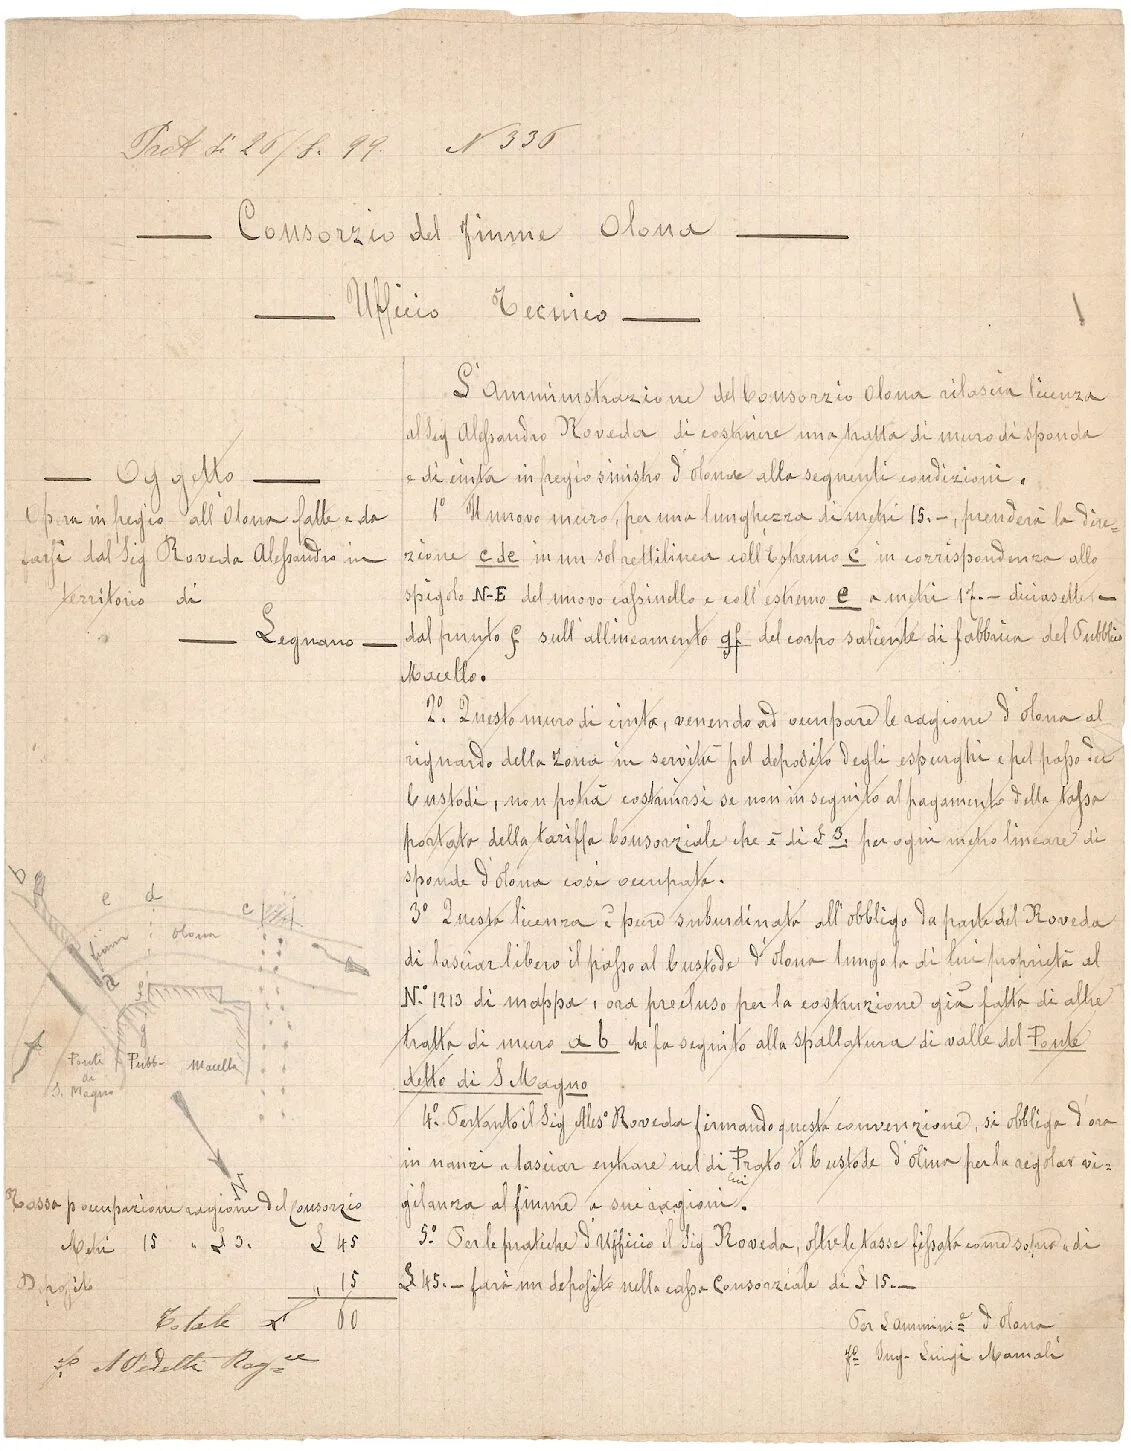 Prot di 26/8. 99. N 336
Consorzio del fiume Olona
Ufficio Tecnico
Oggetto
Opera in fregio all'Olona fatte e da
farsi dal Sig Roveda Alessandro in
territorio di
Legnano
L'Amministrazione del Consorzio Olona rilascia licenza
al Sig Alessandro Roveda di costruire una tratta di muro di sponda
e di cinta in fregio sinistro d'Olona alla seguenti condizioni.
1° Il nuovo muro, per una lunghezza di metri 15.-, prenderà la dire-
zione c de in un sol rettilinea coll'Estremo c in corrispondenza allo
spigolo N-E del nuovo cassinello e coll'estremo e a metri 17.- diciasette -
dal punto f sull'allineamento gf del corpo saliente di fabbrica del Pubblico
Macello.
2° Questo muro di cinta, venendo ad occupare le ragione d'Olona al
riguardo della zona in servitù pel deposito degli espurghi e pel passo dei
Custodi, non potrà costruirsi se non in seguito al pagamento della tassa
portata della tariffa Consorziale che è di £ 3. per ogni metro lineare di
sponde d'Olona così occupata.
3° Questa licenza è pure subordinata all'obbligo da parte del Roveda
di lasciar libero il passo al Custode d'Olona lungo la di lui proprietà al
N.° 1213 di mappa, ora precluso per la costruzione già fatta di altre
tratta di muro a b che fa seguito alla spallatura di valle del Ponte
detto di S Magno
4° Pertanto il Sig Ales° Roveda firmando questa convenzione, si obbliga d'ora
in nanzi a lasciar entrare nel di lui Prato il Custode d'Olona per la regolar vi-
gilanza al fiume a sue ragioni.
5° Per le pratiche d'Ufficio il Sig Roveda, oltre le tasse fissata come sopra di
£ 45.- farà un deposito nella cassa Consorziale di £ 15.-
Per L'Ammini.e d'Olona
f° Ing. Luigi Mamoli
b a e d c
fiume Olona
f g
Ponte
di
S. Magno
Pubb- Macello
N
Tassa p occupazione ragione del Consorzio
Metri 15 " £ 3. £ 45
Deposito " 15
Totale £ 60